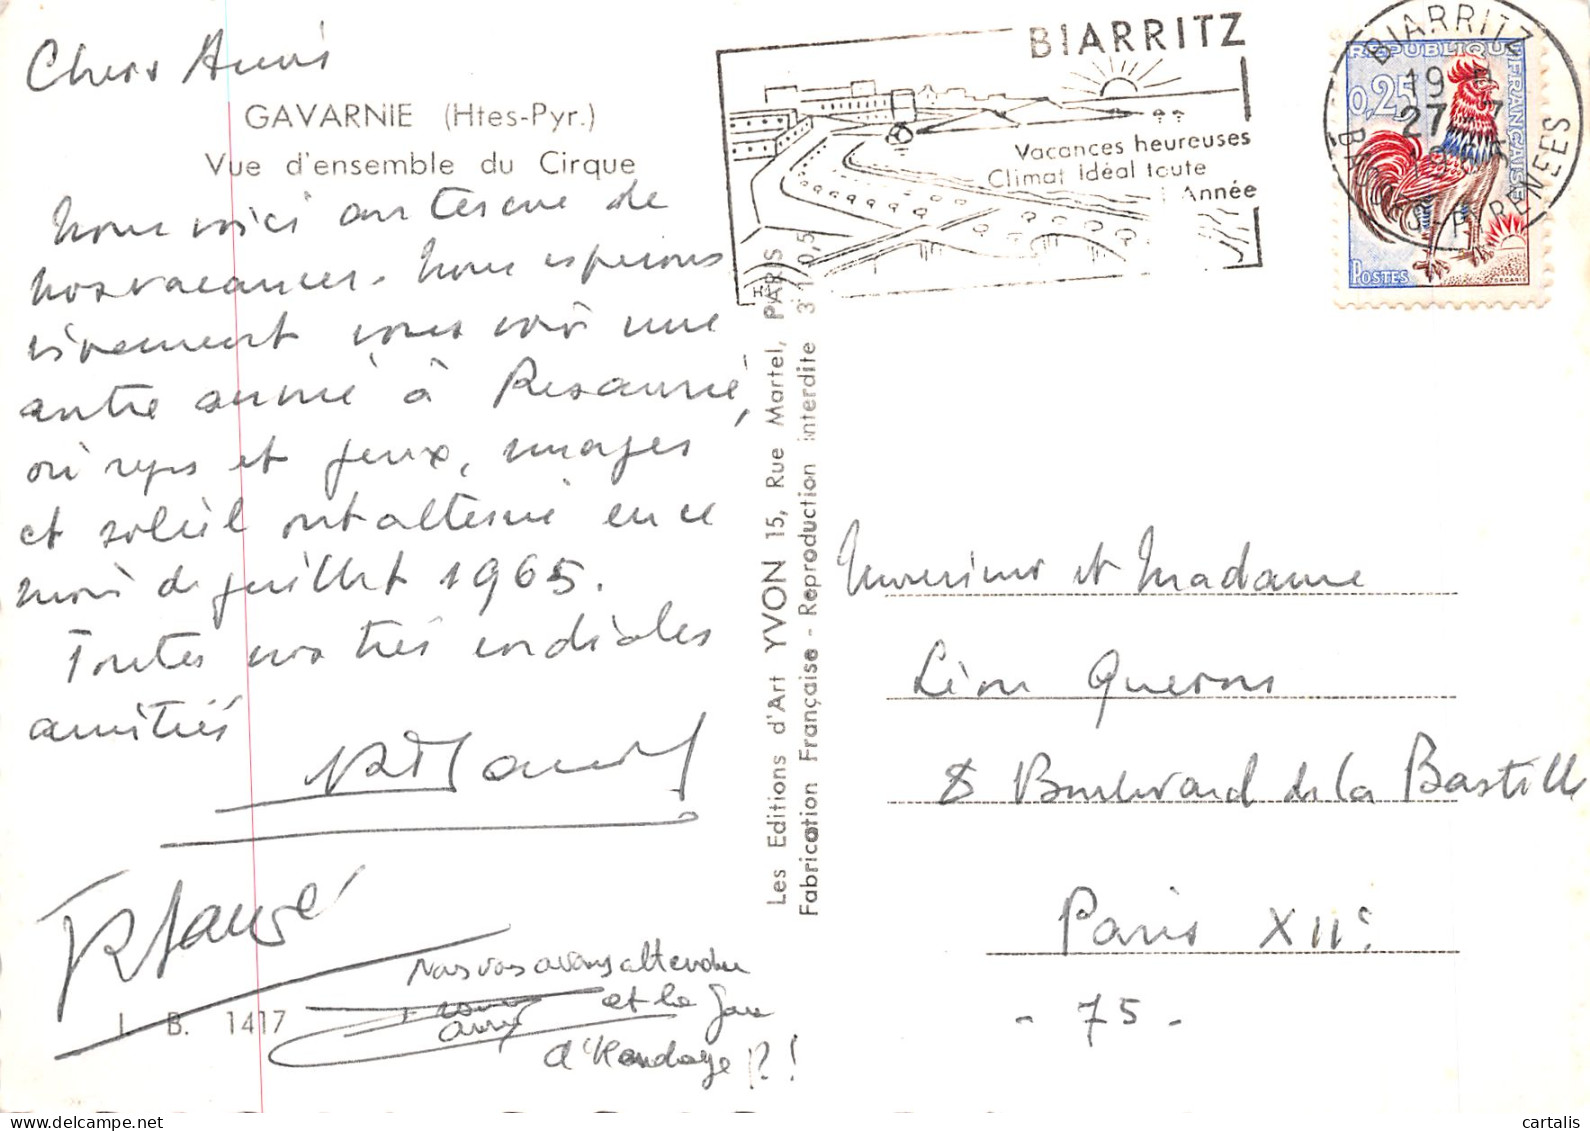 Chers Amis
GAVARNIE (Htes-Pyr.)
Vue d'ensemble du Cirque
Nous voici au terme de
nos vacances. Nous espérons
vivement vous voir une
autre année à
où repos et jeux, nuages
et soleil ont alterné en ce
mois de juillet 1965.
Toutes nos très cordiales
amitiés
Nous vous avons attendu
et la Gare
d'Hendaye !
I. B. 1417
Les Editions d'Art YVON 15, Rue Martel, PARIS
Fabrication Française - Reproduction interdite
BIARRITZ
Vacances heureuses
Climat Idéal toute
Année
BIARRITZ
19 H
27 - 7
BASSES-PYRENEES
REPUBLIQUE FRANÇAISE
0,25
POSTES
DECARIS
Monsieur et Madame
Léon
8 Boulevard de la Bastille
Paris XIIe
- 75 -
cartalis